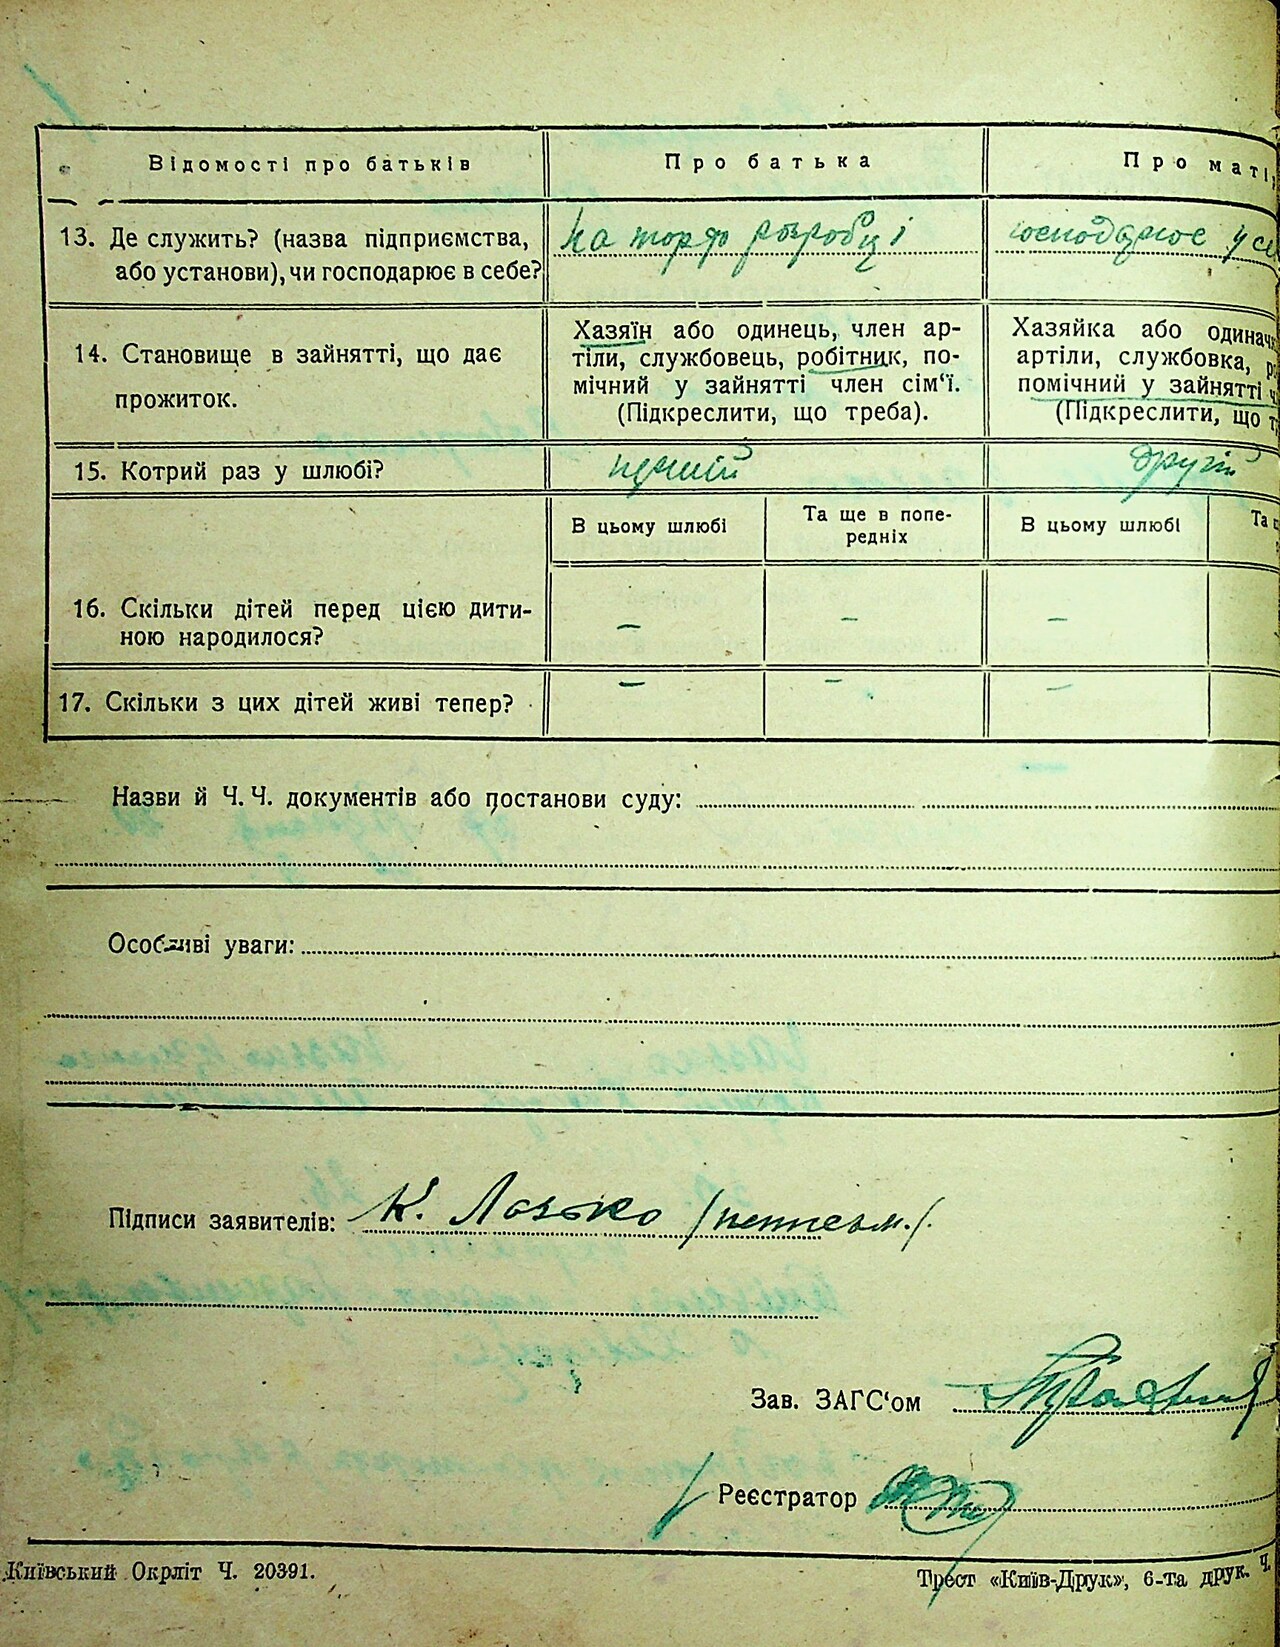 Відомості про батьків
Про батька
Про маті
13. Де служить? (назва підприємства,
або установи), чи господарює в себе?
на торф розробці
господарює у се
14. Становище в зайнятті, що дає
прожиток.
Хазяїн або одинець, член ар-
тіли, службовець, робітник, по-
мічний у зайнятті член сім‘ї.
(Підкреслити, що треба).
Хазяйка або одинач
артіли, службовка, р
помічний у зайнятті ч
(Підкреслити, що т
15. Котрий раз у шлюбі?
другій
В цьому шлюбі
Та ще в попе-
редніх
В цьому шлюбі
Та
16. Скільки дітей перед цією дити-
ною народилося?
– – –
17. Скільки з цих дітей живі тепер?
– – –
Назви й Ч. Ч. документів або постанови суду:
Особливі уваги:
Підписи заявителів: К. Лазько
Зав. ЗАГС‘ом
Реєстратор
Київський Окрліт Ч. 20391.
Трест «Київ-Друк», 6-та друк. Ч.